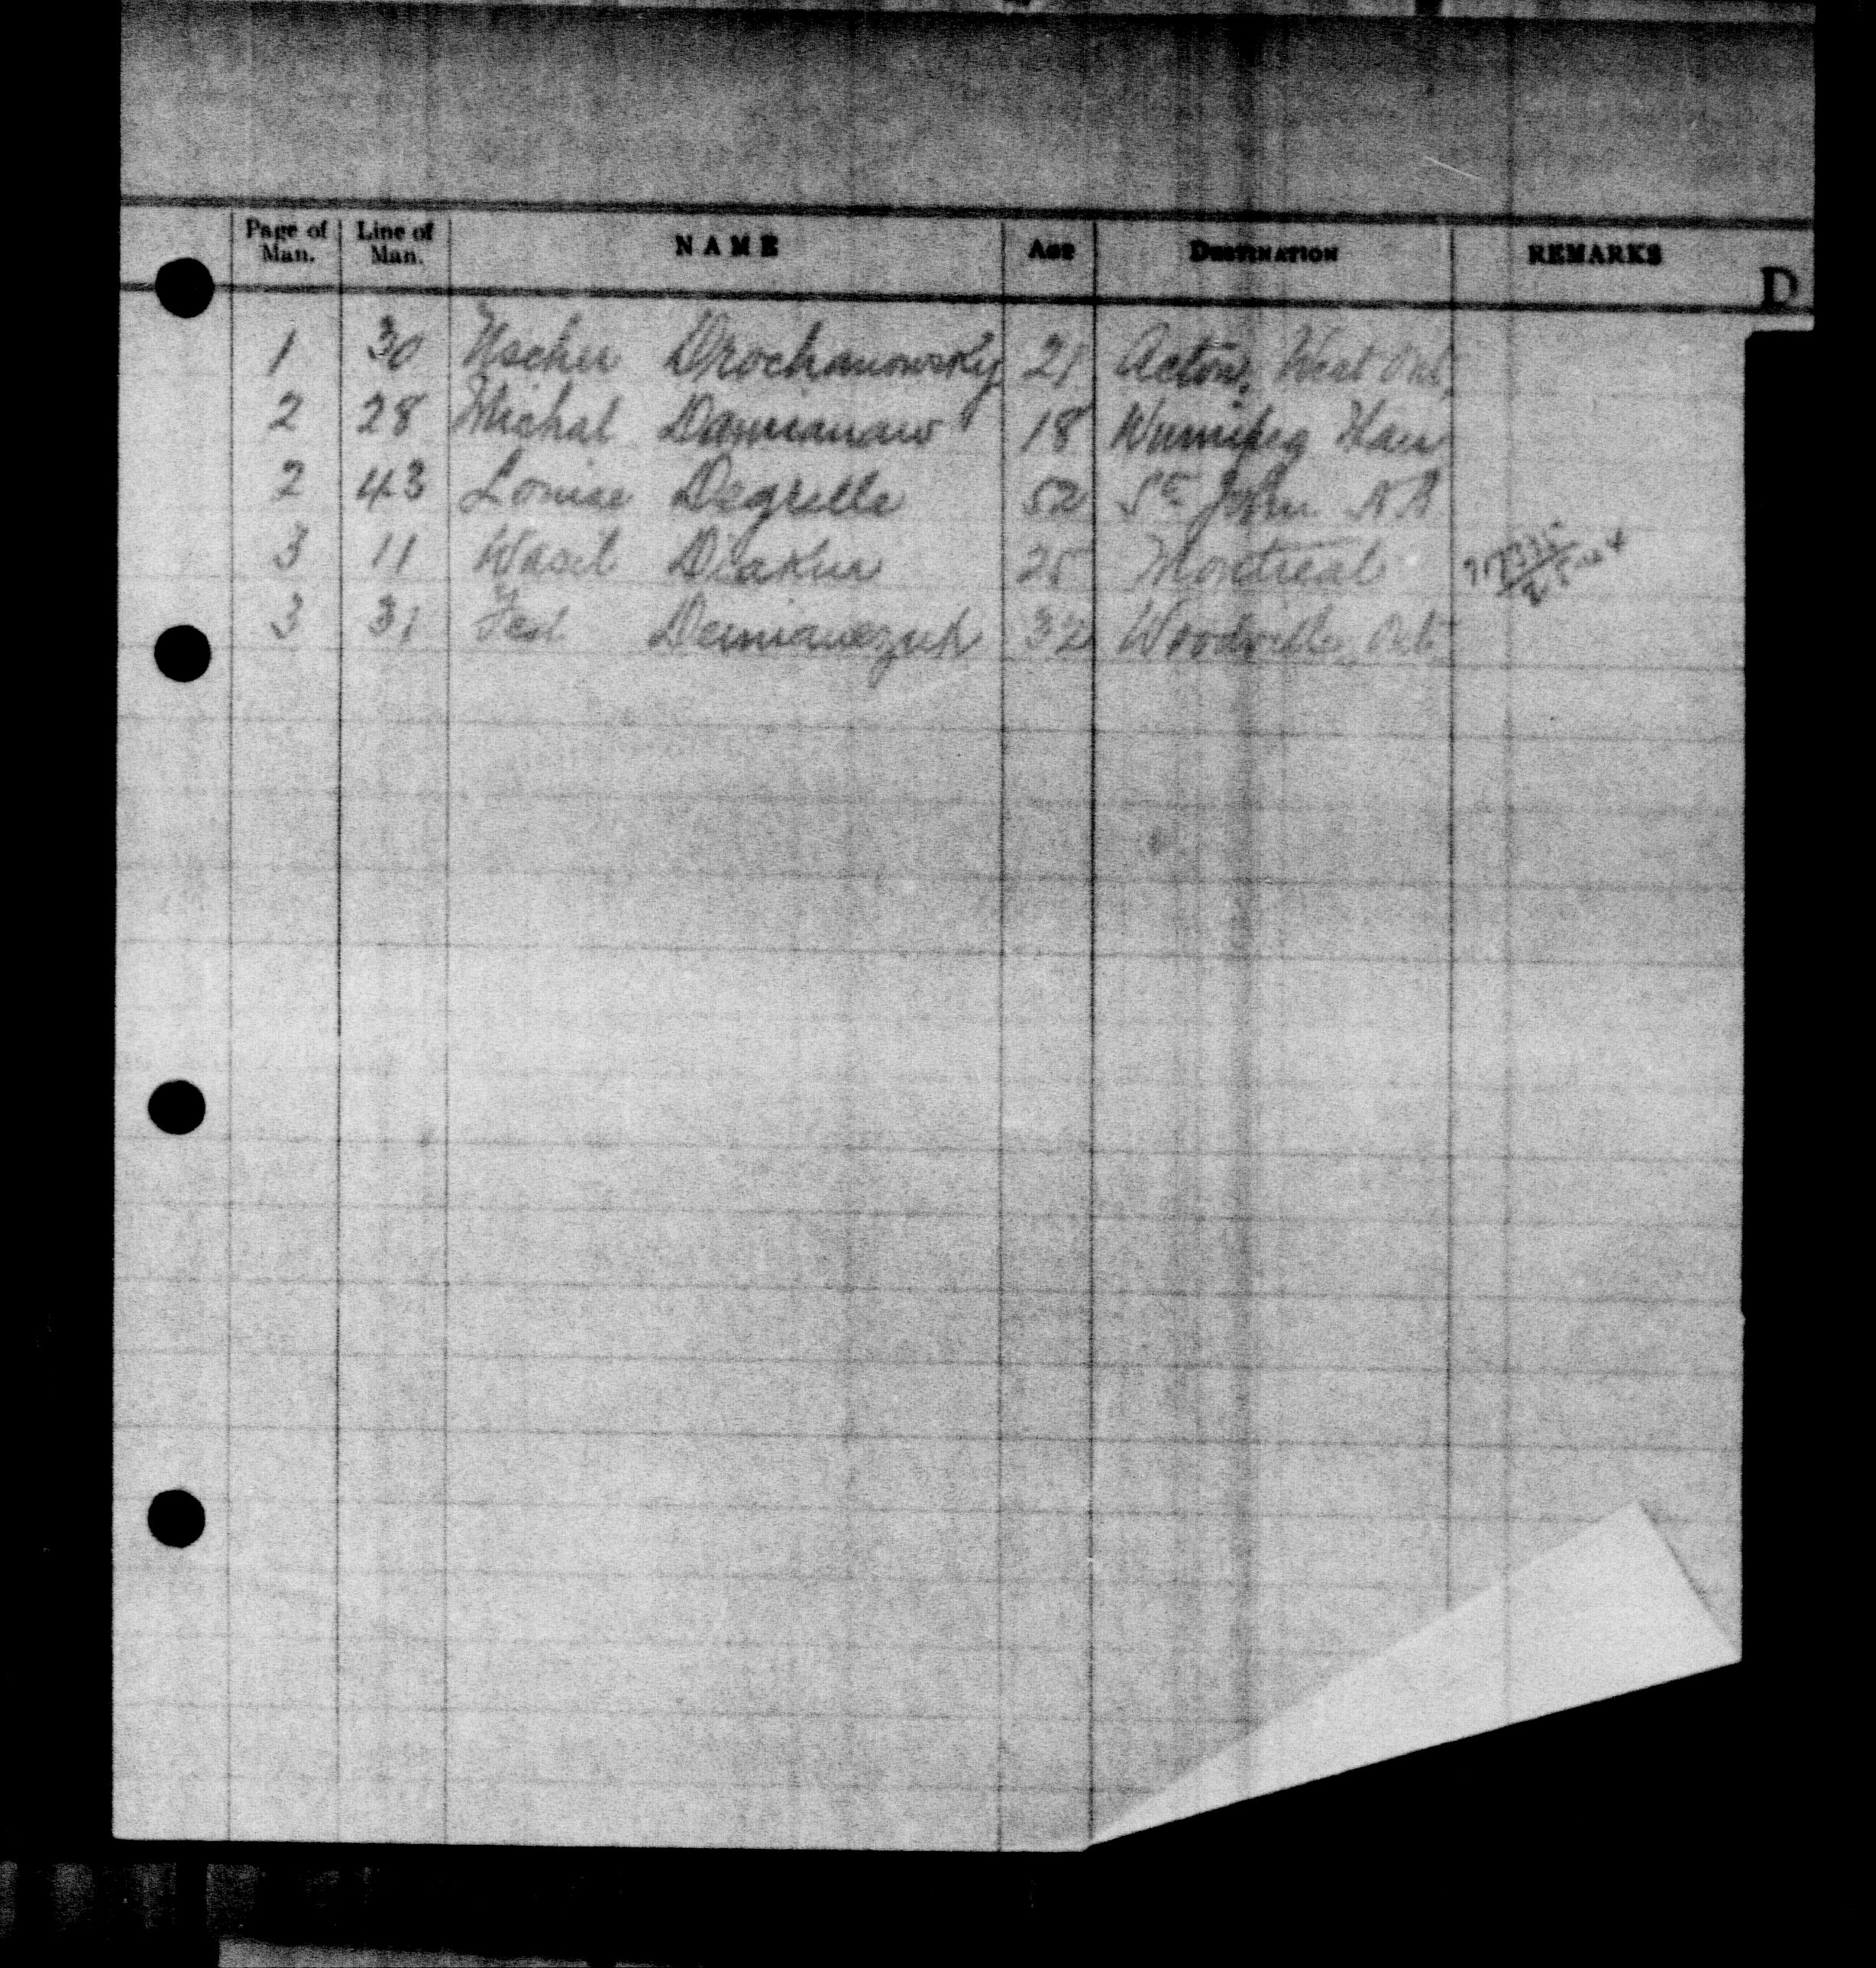 Page of Man. Line of Man. NAME AGE DESTINATION REMARKS
D
1 30 Uscher Drochanowsky 21 Acton, West Ont,
2 28 Michal Damianaw 18 Winnipeg Man
2 43 Louise Degrelle 52 St John N B
3 11 Wasil Diakur 25 Montreal
3 31 Fed Demianczuk 32 Woodville, Ont